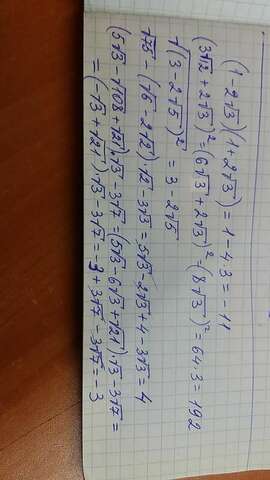 (1-2√3)(1+2√3) = 1-4·3 = -11
(3√12+2√3)² = (6√3+2√3)² = (8√3)² = 64·3 = 192
√(3-2√5)² = 3-2√5
√75 - (√6-2√2)·√2 - 3√3 = 5√3-2√3+4-3√3 = 4
(5√3-√108+√21)√3-3√7 = (5√3-6√3+√21)√3-3√7 =
= (-√3+√21)√3-3√7 = -3+3√7-3√7 = -3